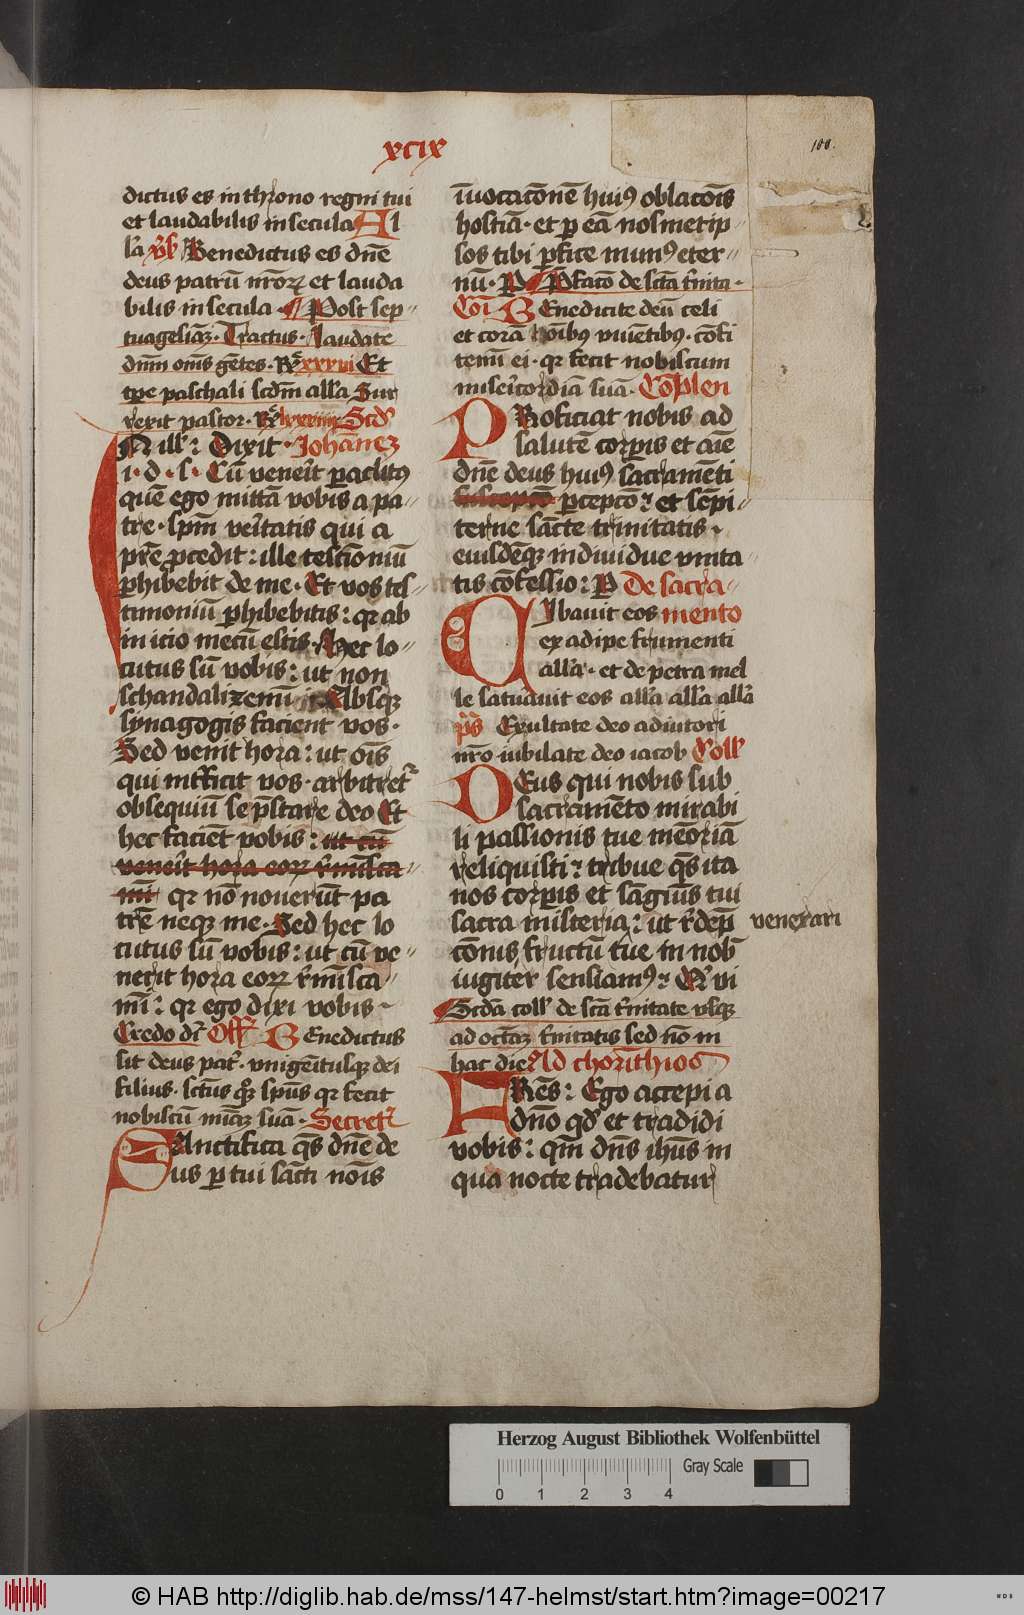 xcix
100.
dictus es in throno regni tui
et laudabilis in secula Al
l'a v̄s Benedictus es dn̄e
deus patrū nr̄oꝝ et lauda
bilis in secula · Post sep-
tuagesiāꝫ · Tractus · Laudate
dn̄m om̄s gētes · xxxvi Et
tꝑe paschali scdm̄ all'a Sur
rexit pastor · lxxviiij Scd'
N ill': Dixit · Johannez
i · d · s · Cū venerit paclitꝰ
quē ego mittā vobis a pa-
tre · spm̄ veritatis qui a
pr̄e ꝓcedit: ille testīoniū
ꝑhibebit de me · Et vos tes-
timoniū ꝑhibebitis: qꝛ ab
in icio mecū estis · Hec lo-
cutus sū vobis: ut non
schandalizemī Absqꝫ
synagogis facient vos ·
Sed venit hora: ut oīs
qui intficit vos · arbitret'
obsequiū se p̄stare deo Et
hec faciēt vobis: ut cū
venerit hora eoꝝ r̄mīsca-
mī qꝛ nō noverūt pa
trē neqꝫ me · Sed hec lo
cutus sū vobis: ut cū ve-
nerit hora eoꝝ r̄mīsca-
mī: qꝛ ego dixi vobis ·
Credo dr̄ Off' Benedictus
sit deus pat' · unigēitusqꝫ dei
filius · sctūs qꝫ spūs qꝛ fecit
nobiscū mīaꝫ suā · Secret'
Sanctifica qs̄ dn̄e de
us ꝑ tui sācti noīs
īuocacōnē huiꝰ oblacōis
hostiā · et ꝑ eā nosmetip-
sos tibi ꝑfice munꝰ eter-
nū · P Pfacō de scā t'nita ·
Cōi Benedicite deū celi
et corā oībus viuētibꝰ · cōfi
temī ei · qꝛ fecit nobiscum
misericordiā suā · Cōplen
Proficiat nobis ad
salutē corꝑis et aīe
dn̄e deus huiꝰ sacramēti
suscepcō ꝑcepcō: et sēpi-
terne sācte trinitatis ·
eiusdēqꝫ individue unita-
tis cōfessio: P De sacra-
Cibavit eos mento
ex adipe frumenti
all'a · et de petra mel
le saturavit eos all'a all'a all'a
p̄s Exultate deo adiutori
nr̄o iubilate deo iacob Coll'
Deus qui nobis sub
sacramēto mirabi
li passionis tue memoriā
reliquisti: tribue qs̄ ita
nos corꝑis et sāgīs tui
sacra misteria: ut r̄dēp venerari
cōnis fructū tue in nob
iugiter senciamꝰ: Q' vi
Scdā coll' de scā t'nitate usqꝫ
ad octaꝫ t'nitatis sed nō in
hac die Ad chorīthios
Frēs: Ego accepi a
dn̄o qd' et tradidi
vobis: qm̄ dn̄s ihūs in
qua nocte tradebatur
Herzog August Bibliothek Wolfenbüttel
Gray Scale
0 1 2 3 4
© HAB http://diglib.hab.de/mss/147-helmst/start.htm?image=00217